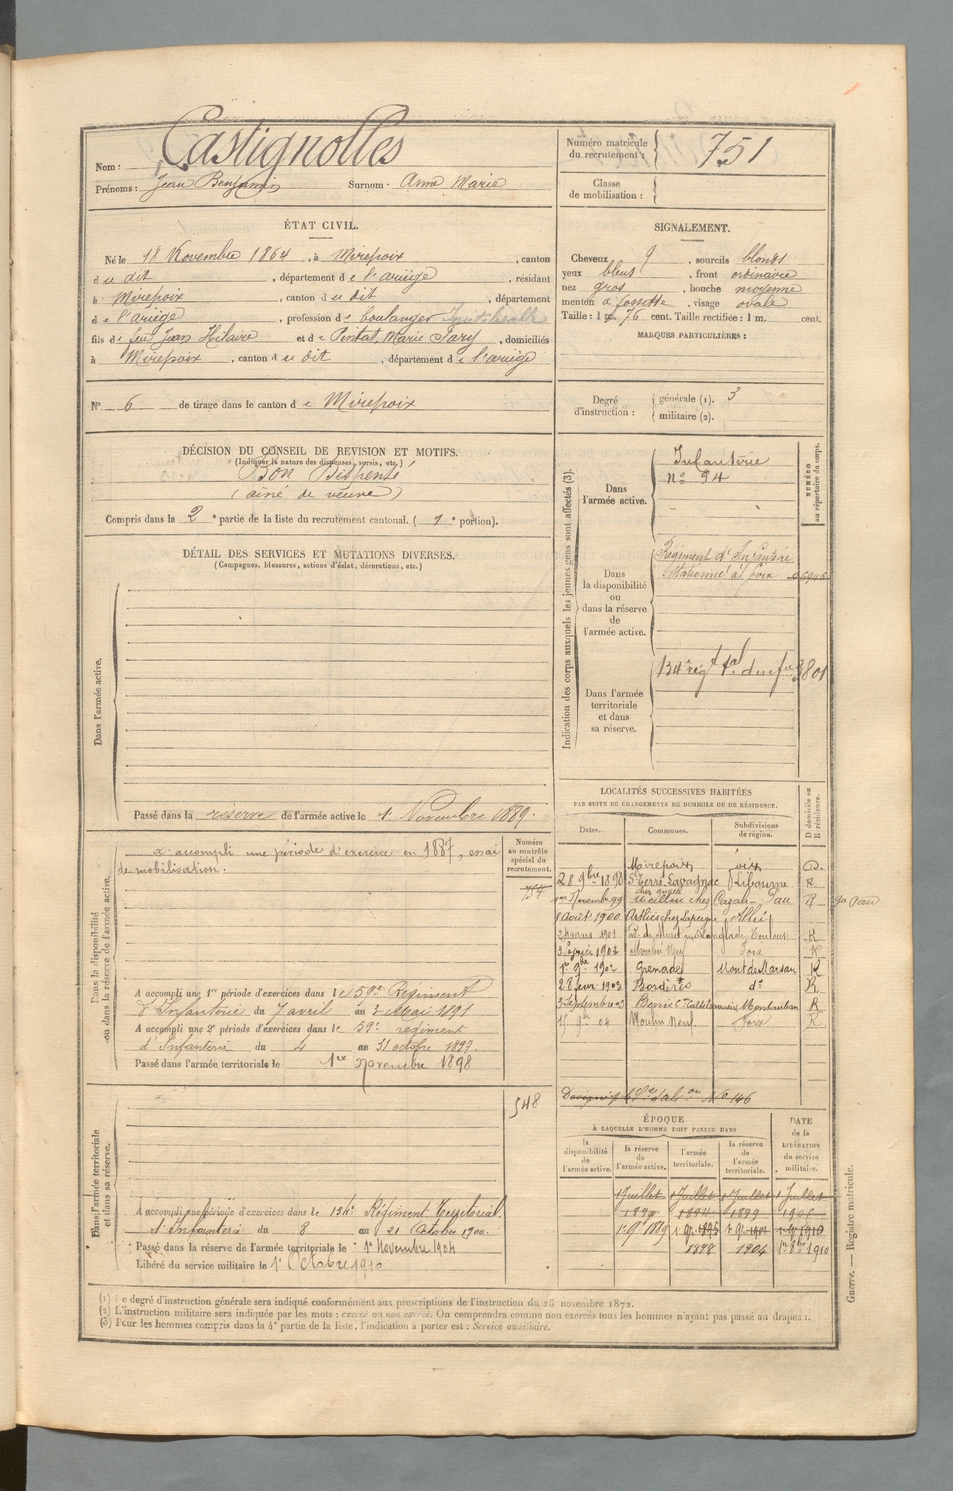 Nom : Castignolles
Prénoms : Jean Benjamin Surnom : Anne Marie
Numéro matricule du recrutement : 751
Classe de mobilisation :
ÉTAT CIVIL.
Né le 18 Novembre 1864, à Mirepoix, canton
du dit, département de l'ariège, résidant
à Mirepoix, canton du dit, département
de l'ariège, profession de boulanger
fils de feu Jean Hilaire et de Pintat, Marie Jary, domiciliés
à Mirepoix, canton du dit, département de l'ariège
N° 6 de tirage dans le canton de Mirepoix
SIGNALEMENT.
Cheveux, sourcils blonds
yeux bleus, front ordinaire
nez gros, bouche moyenne
menton à fossette, visage ovale
Taille : 1 m. 76 cent. Taille rectifiée : 1 m. cent.
MARQUES PARTICULIÈRES :
Degré d'instruction : générale (1). 3
militaire (2).
DÉCISION DU CONSEIL DE REVISION ET MOTIFS.
(Indiquer la nature des dispenses, sursis, etc.)
Bon Dispensé
(aîné de veuve)
Compris dans la 2e partie de la liste du recrutement cantonal. (1e portion).
DÉTAIL DES SERVICES ET MUTATIONS DIVERSES.
(Campagnes, blessures, actions d'éclat, décorations, etc.)
Dans l'armée active.
Passé dans la réserve de l'armée active le 1er Novembre 1889.
Indication des corps auxquels les jeunes gens sont affectés (3).
NUMÉRO au répertoire du corps.
Dans l'armée active.
Infanterie
n° 94
Dans la disponibilité ou dans la réserve de l'armée active.
Régiment d'Infanterie
stationné à Foix
Dans l'armée territoriale et dans sa réserve.
134e rég t tal d'inf 3801
Dans la disponibilité ou dans la réserve de l'armée active.
Numéro au contrôle spécial du recrutement.
754
a accompli une période d'exercice en 1887, essai
de mobilisation.
A accompli une 1re période d'exercices dans le 59e Régiment
d'Infanterie du 7 avril au 3 Mai 1891
A accompli une 2e période d'exercices dans le 59e régiment
d'Infanterie du 4 au 31 octobre 1893.
Passé dans l'armée territoriale le 1er Novembre 1898
LOCALITÉS SUCCESSIVES HABITÉES
PAR SUITE DE CHANGEMENTS DE DOMICILE OU DE RÉSIDENCE.
Dates. Communes. Subdivisions de région. D domicile ou R résidence.
Mirepoix Foix D.
28 9bre 1898 St Terre Lavagnac Libourne R
1er Novembre 99 Meillon chez Cazali Pau R
1 Avril 1900 chez
24 mars 1901 Toulouse R
1902 Moulin Neuf Foix R
1er 9bre 1902 Grenade Mont de Marsan R
28 fevr 1903 Bordères do R
3 Septembre 03 Montauban R
9bre 04 Moulin Neuf Foix R
N° 146
Dans l'armée territoriale et dans sa réserve.
548
A accompli une période d'exercices dans le 134e Régiment Territorial
d'Infanterie du 8 au 21 Octobre 1900.
Passé dans la réserve de l'armée territoriale le 1er Novembre 1904
Libéré du service militaire le 1er Octobre 1910
ÉPOQUE
À LAQUELLE L'HOMME DOIT PASSER DANS
DATE de la LIBÉRATION du service militaire.
la disponibilité de l'armée active. la réserve de l'armée active. l'armée territoriale. la réserve de l'armée territoriale.
1 Juillet 1 Juillet 1 Juillet 1 Juillet
1890 1894 1899 1905
1er 9bre 1889 1er 9bre 1895 1er 9bre 1901 1910
1898 1904 1er 8bre 1910
(1) Le degré d'instruction générale sera indiqué conformément aux prescriptions de l'instruction du 26 novembre 1872.
(2) L'instruction militaire sera indiquée par les mots : exercé ou non exercé. On comprendra comme non exercés tous les hommes n'ayant pas passé au drapeau.
(3) Pour les hommes compris dans la 4e partie de la liste, l'indication à porter est : Service auxiliaire.
Guerre. — Registre matricule.